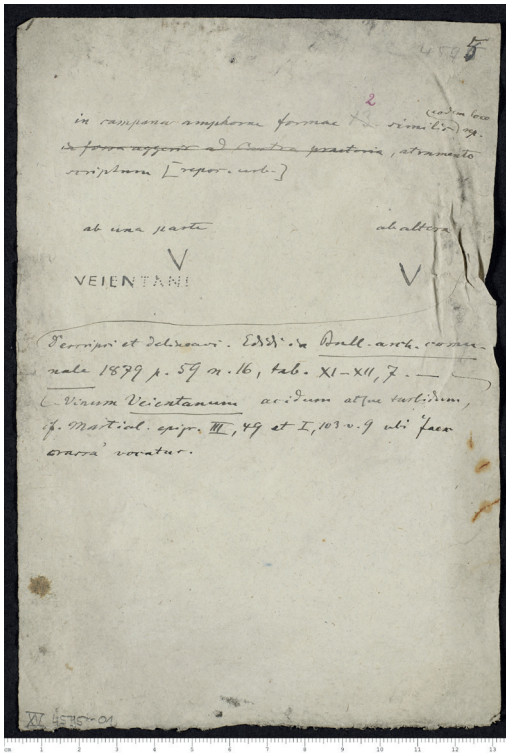 5
2
in campana amphorae formae similis (eodem loco) rep.
in fossa aggeris ad Castra praetoria, atramento
scriptum [repos. urb.]
ab una parte ab altera
V
VEIENTANI V
Descripsi et delineavi. Edidi in Bull. arch. comu-
nale 1879 p. 59 n. 16, tab. XI-XII, 7. —
Vinum Veientanum acidum atque turbidum,
cf. Martial. epigr. III, 49 et I, 103 v. 9 ubi 'faex
crassa' vocatur.
XV 4595-01